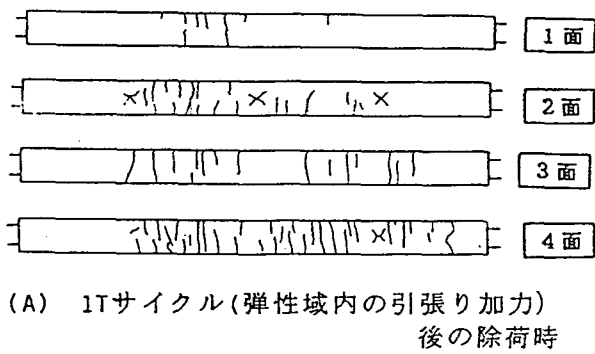 1面
2面
3面
4面
(A) 1Tサイクル(弾性域内の引張り加力)
後の除荷時